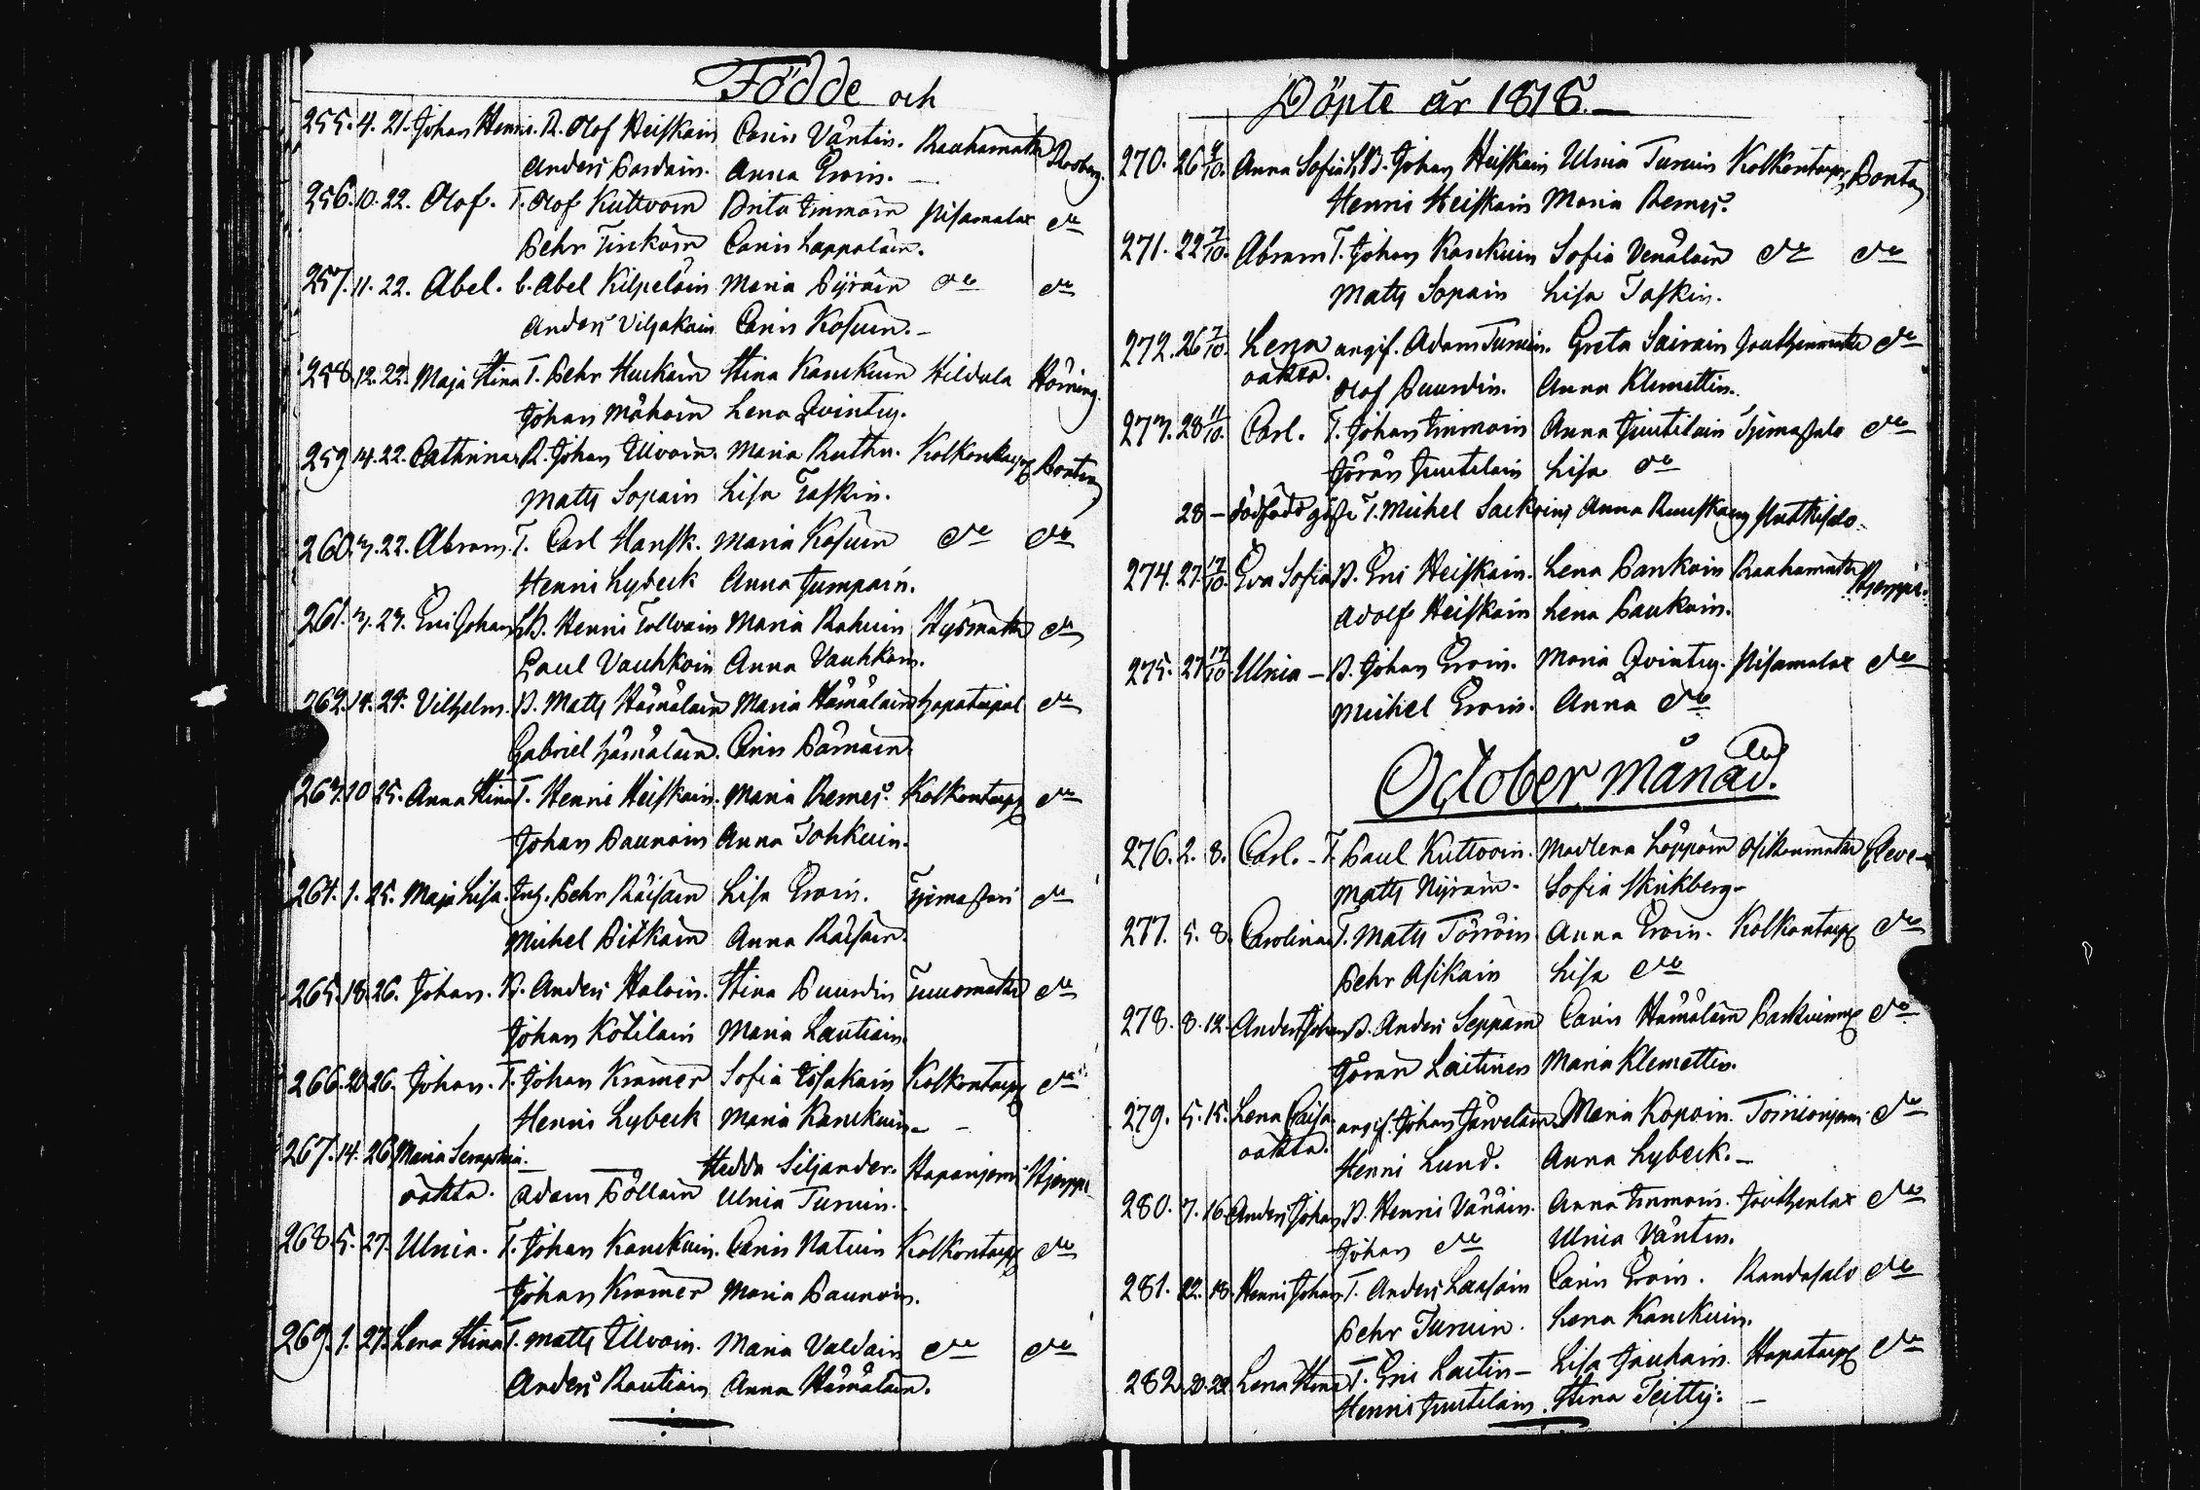 Födde och
255. 4. 21. Johan Henric. B. Olof Heiskain Carin Väntin. Rauhamäki
Anders Pardain. Anna Eroin. —
256. 10. 22. Olof. T. Olof Kuttvoin Brita Immoin Pisamalax do
Pehr Tirkoin Carin Lappalain.
257. 11. 22. Abel. b. Abel Kilpeläin Maria Pijräin do do
Anders Viljakain Carin Kosuin. —
258. 12. 22. Maja Stina T. Pehr Huckain Stina Kanckuin Hildula
Johan Måhoin Lena Qvintus.
259 14. 22. Cathrina B. Johan Ulvoin Maria Ruthu. Kolkontaip.
Matts Sopain Lisa Taskin.
260. 22. Abram. T. Carl Hansk. Maria Kosuin do do
Henric Lybeck Anna Jumpain.
261. 23. Eric Johan Henric Tolvain Maria Rahuin do
Paul Vauhkoin Anna Vauhkoin.
262. 14. 24. Vilhelm. B. Matts Hämäläin Maria Hämäläin Hapataipal do
Gabriel Hämäläin. Carin Pärnäin.
263. 10 25. Anna Stina T. Henric Heiskain. Maria Remes. Kolkontaip. do
Johan Paunoin Anna Tohkuin.
264. 1. 25. Maja Lisa. Inh. Pehr Räisäin Lisa Eroin. do
Michel Pitkäin Anna Räisäin.
265. 18. 26. Johan. B. Anders Haloin. Stina Puurdin Tuusmäki do
Johan Kotilain Maria Lautiain.
266. 20 26. Johan. T. Johan Kramer Sofia Kolkontaip. do
Henric Lybeck Maria Kanckuin. —
267. 14. 26. Maria Seraphia. — Hedda Siljander. Haparijemi
oäkta. Adam Pöllain Ulrica Turuin.
268. 5. 27. Ulrica. T. Johan Kanckuin. Carin Natuin Kolkontaip. do
Johan Kramer Maria Paunoin.
269. 1. 27. Lena Stina T. Matts Ulvoin. Maria Valdain do do
Anders Rautiain Anna Hämäläin.
Döpte år 1818. —
270. 26 Anna Sofia Johan Heiskain Ulrica Turuin Kolkontaip.
Henric Heiskain Maria Remes.
271. 22 7/10. Abram T. Johan Kanckuin Sofia Venäläin do do
Matts Sopain Lisa Taskin.
272. 26 7/10. Lena angif. Adam Turuin. Greta Sairain do
oäkta. Olof Puurdin. Anna Klemettin.
273. 28 11/10. Carl. T. Johan Immoin Anna Juutilain do
Jöran Juutilain Lisa do
28 — dödfödd T. Michel Anna Ruuskain
274. 27 17/10. Eva Sofia B. Eric Heiskain. Lena Pankoin Rauhamäki
Adolf Heiskain Lena Paukoin.
275. 27 17/10 Ulrica — B. Johan Eroin. Maria Qvintus. Pisamalax do
Michel Eroin. Anna do
October månad.
276. 2. 8. Carl. - T. Paul Kuttvoin. Madlena Löppöin Asikanmäki
Matts Nijräin. Sofia Skrikberg —
277. 5. 8. Carolina T. Matts Törröin Anna Eroin. Kolkontaip. do
Pehr Asikain Lisa do
278. 8. 12. Anders Johan B. Anders Seppäin Carin Hämäläin do
Göran Laitinen Maria Klemettin.
279. 5. 15. Lena Caisa angif. Johan Järveläin. Maria Kopoin. do
oäkta. Henric Lund. Anna Lybeck. —
280. 7. 16. Anders Johan B. Henric Vänäin. Anna Immoin. do
Johan do Ulrica Väntin.
281. 12. 18. Henric Johan T. Anders Laasain Carin Eroin. Randasalo do
Pehr Turuin. Lena Kanckuin.
282. 20. 22. Lena Stina T. Eric Laitin — Lisa Jauhain. Hapataip. do
Henric Juutilain. Stina Teittj. —